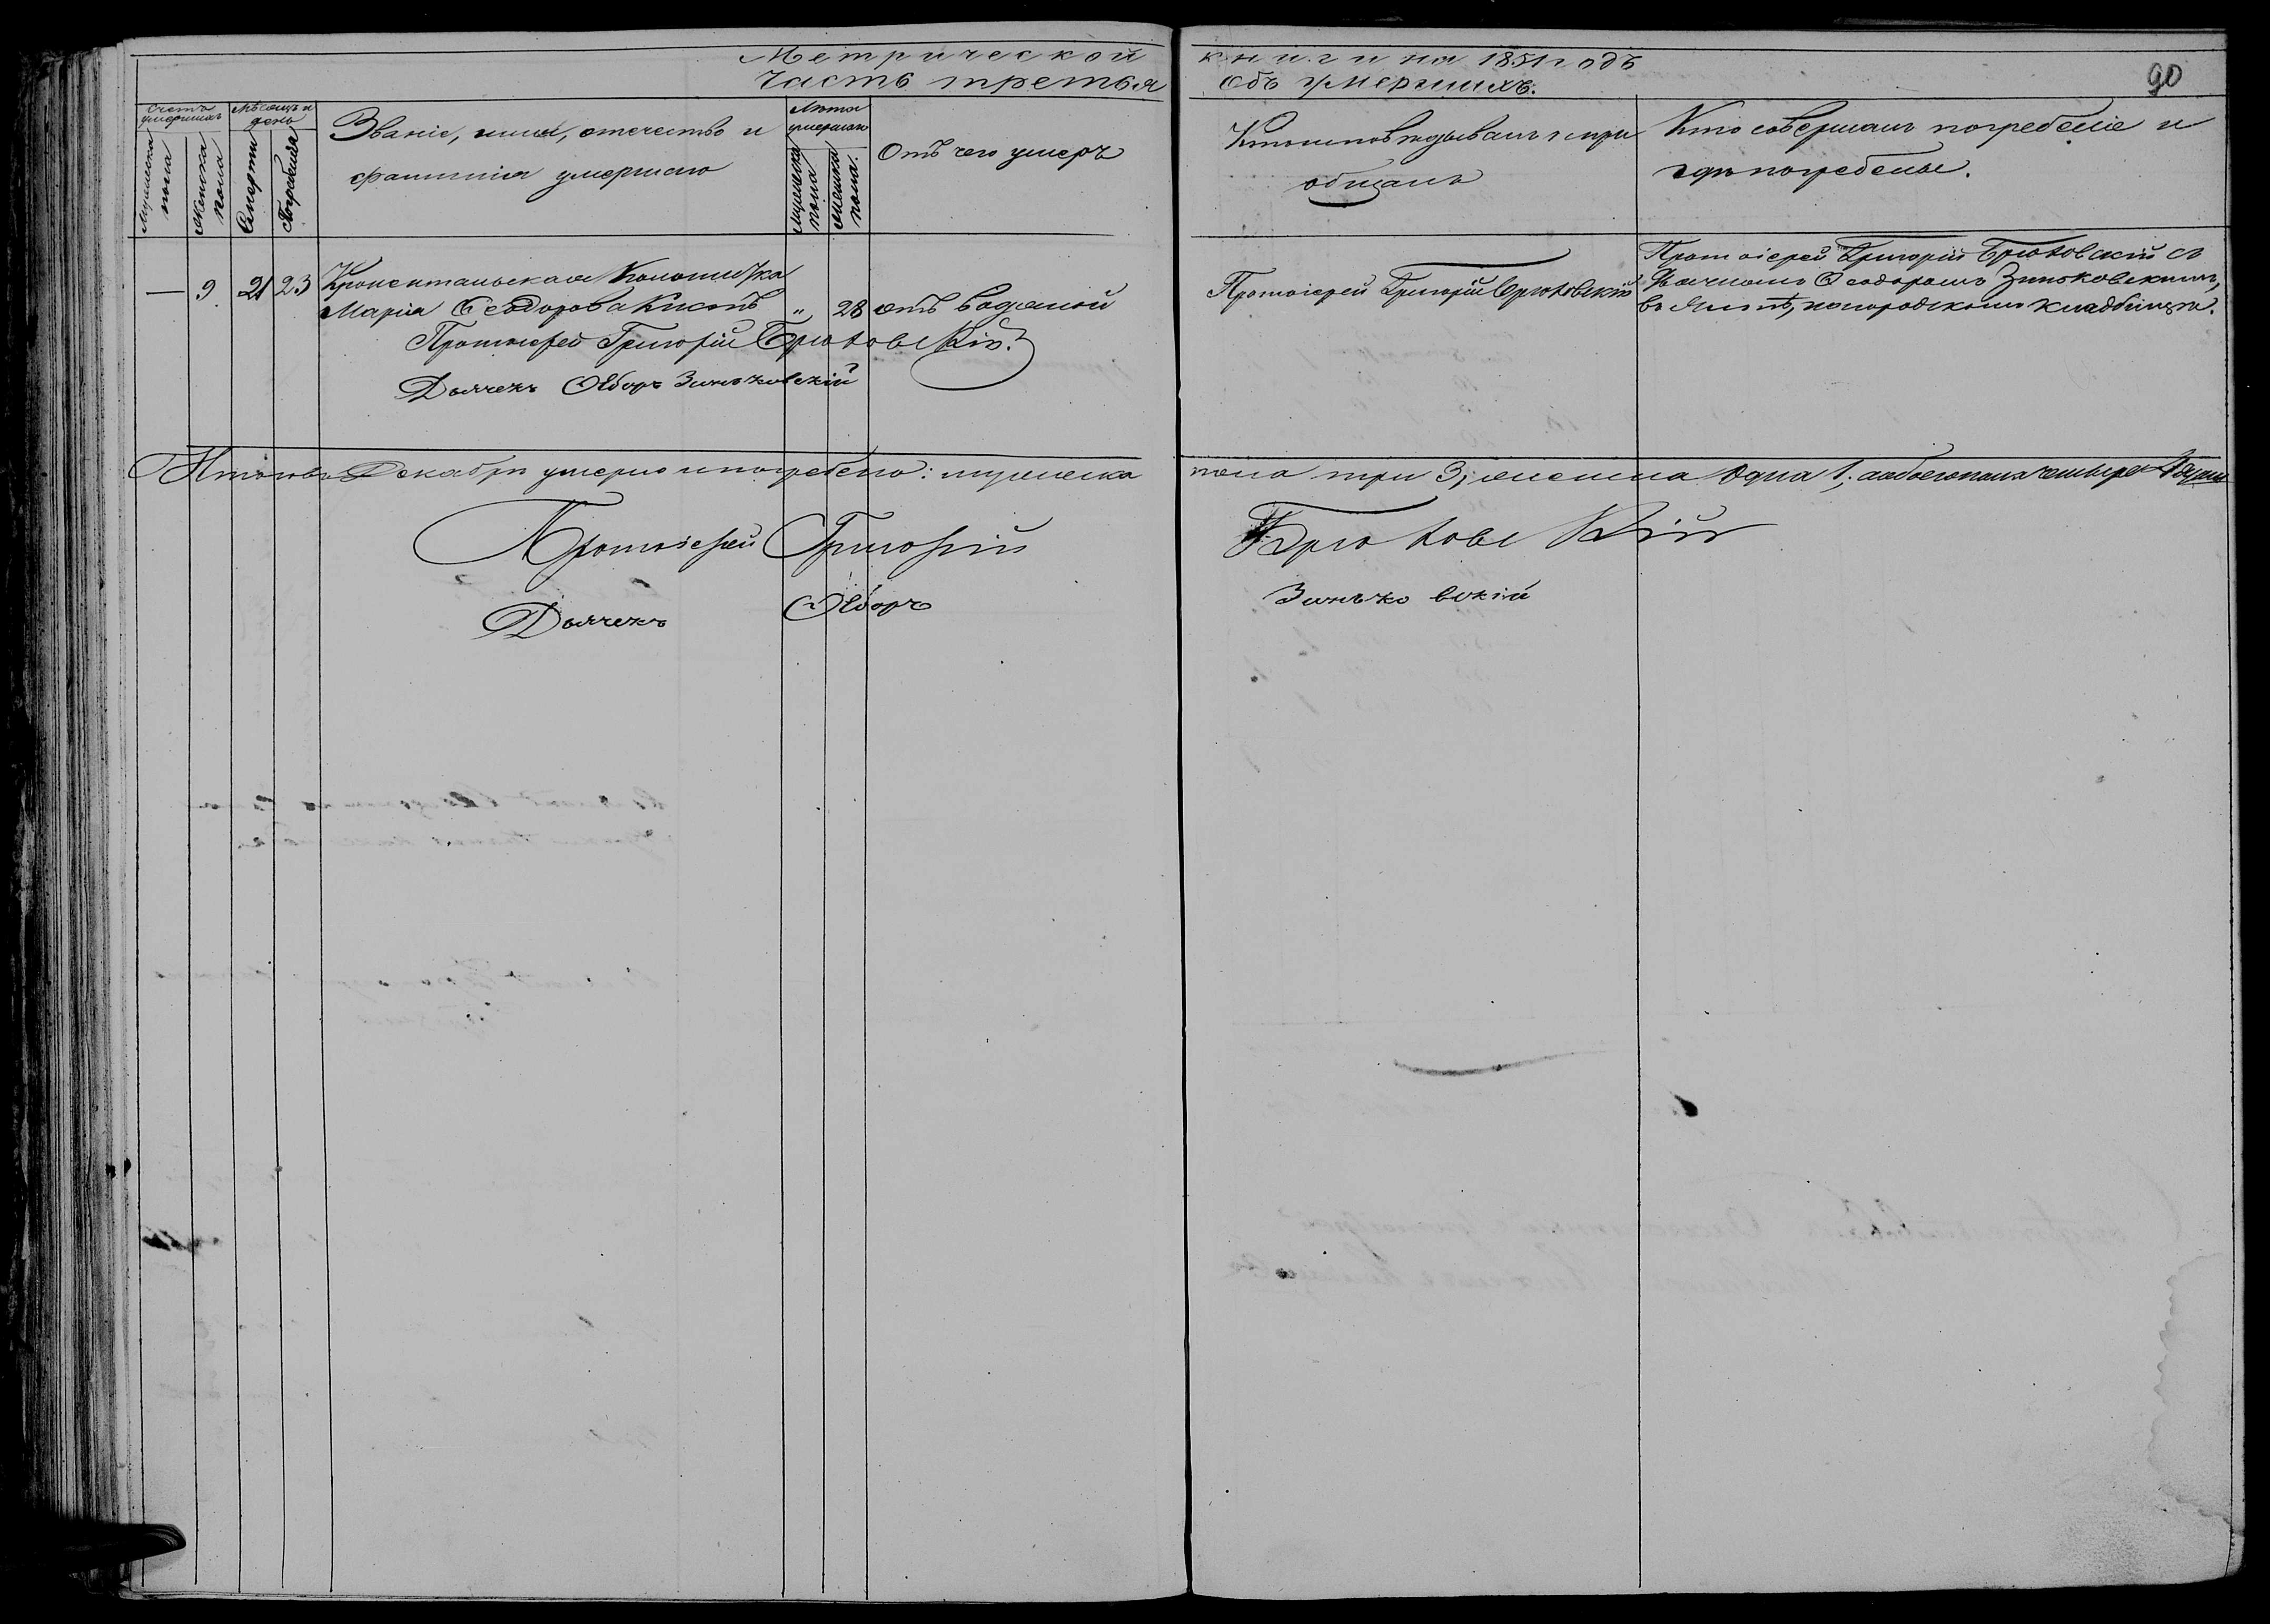 Метрической книги на 1851 годъ
90
Часть третья объ умершихъ.
Счетъ умершихъ
Мужеска пола
Женска пола
Мѣсяцъ и день
Смерти
Погребенія
Званіе, имя, отечество и
фамилія умершаго
Лѣта умершаго
Мужеска пола
Женска пола.
Отъ чего умеръ
Кто исповѣдывалъ и прі
общалъ
Кто совершалъ погребеніе и
гдѣ погребены.
— 9 21 23 Кронентальская Колонистка
Марія Ѳеодорова Кистъ " 28 отъ водяной
Протоіерей Григорій Брюховскій
Протоіерей Григорій Брюховскій съ
Дьячкомъ Ѳеодоромъ Зиньковскимъ,
въ Ялтѣ, на городскомъ кладбищѣ.
Протоіерей Григорій Брюховскій
Дьячекъ Ѳедоръ Зиньковскій
Итого въ Декабрѣ умерло и погребено: мужеска пола три 3; женска одна 1; а обоего пола четыре 4 души
Протоіерей Григорій Брюховскій
Дьячекъ Ѳедоръ Зиньковскій